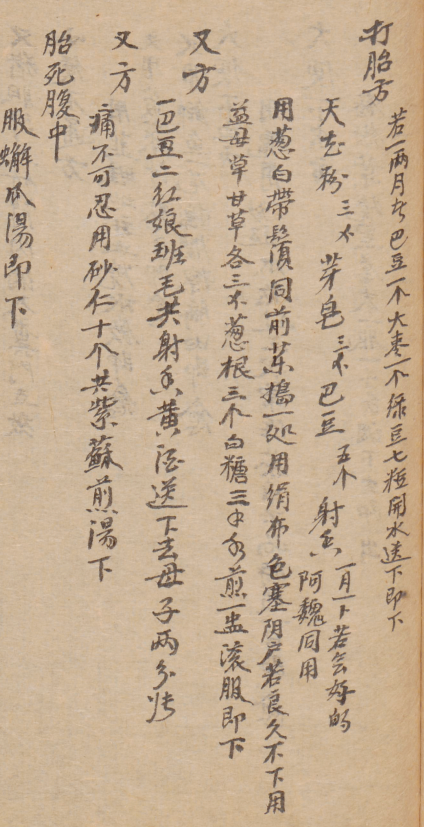 打胎方
若一两月者巴豆一个大枣一个绿豆七粒開水送下即下
天花粉三不 芽皂三不 巴豆五个 射香一月一下若会好的
阿魏同用
用葱白带鬚同前药搗一处用绢布包塞阴户若良久不下用
益母草甘草各三不葱根三个白糖三半水煎一盅滚服即下
又方
一巴豆二红娘班毛共射香黄酒送下去母子两分张
又方
痛不可忍用砂仁十个共紫蘇煎湯下
胎死腹中
服蠏爪湯即下